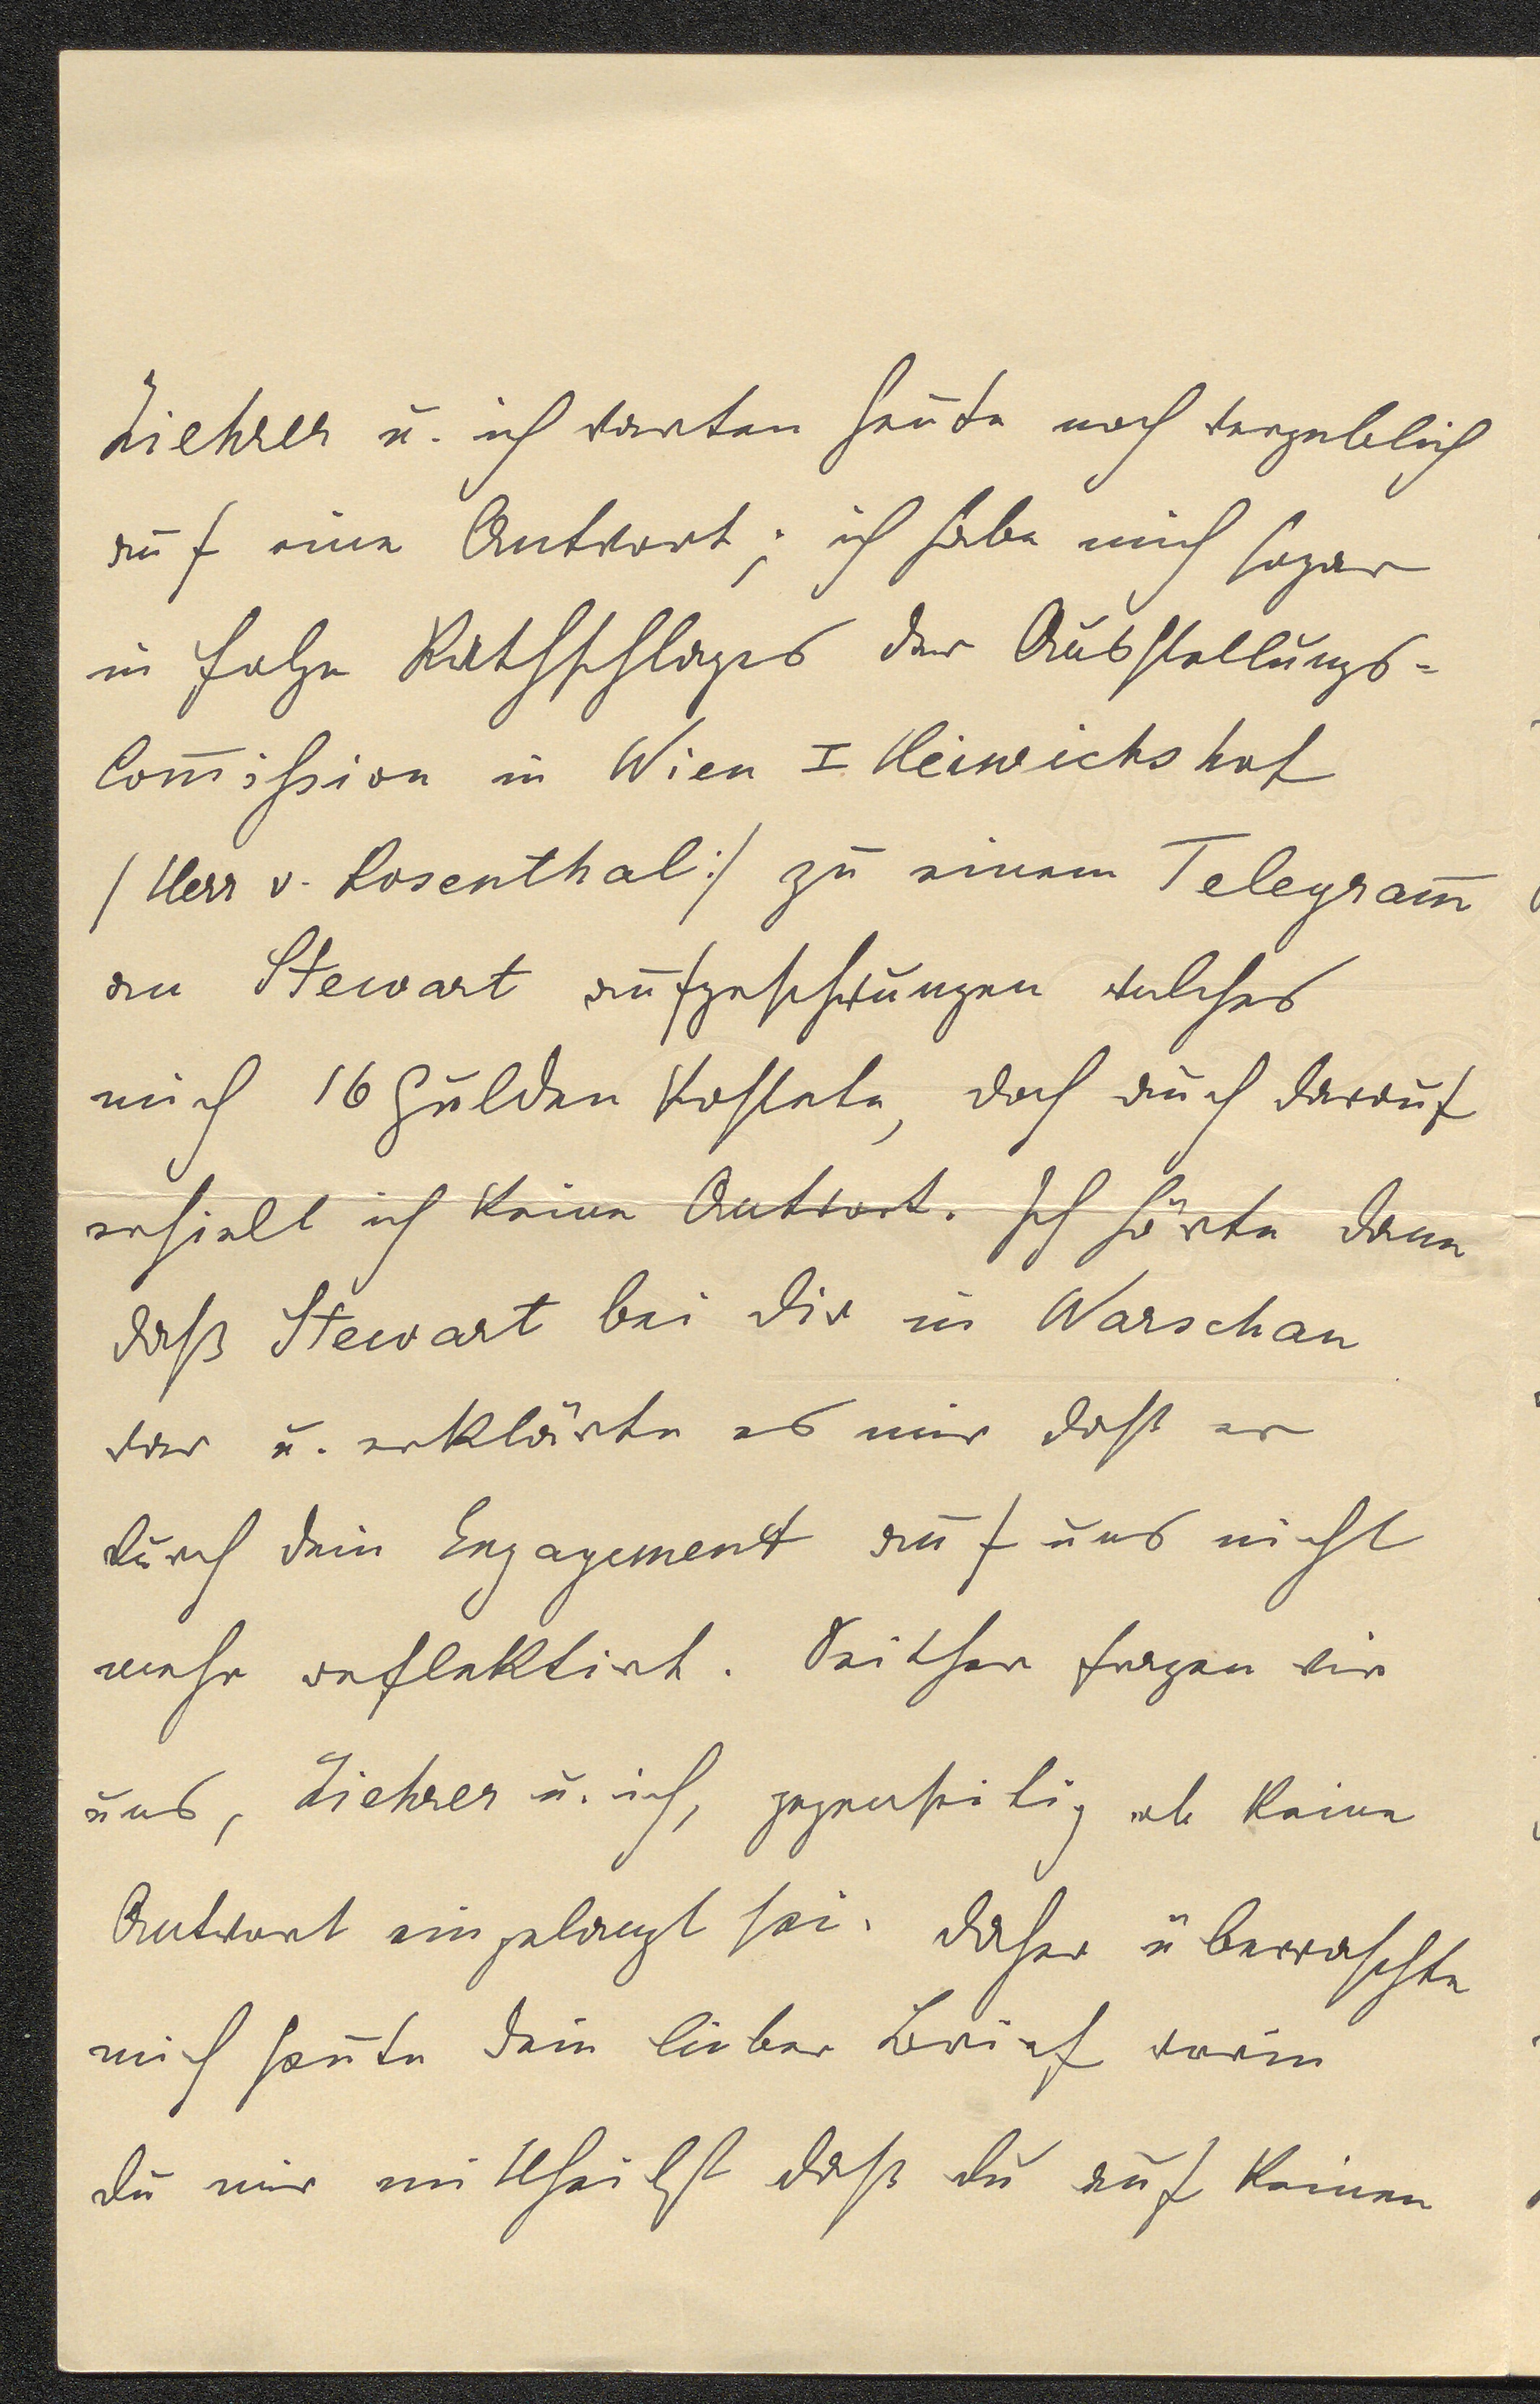 Ziehrer u. ich warten heute noch vergeblich
auf eine Antwort; ich habe mich sogar
in Folge Rathschlages der Ausstellungs-
Com̄ission in Wien I Heinrichshof
/ Herr v. Rosenthal :/ zu einem Telegram̄
an Stewart aufgeschwungen welches
mich 16 Gulden kostete, doch auch darauf
erhielt ich keine Antwort. Ich hörte dann
daß Stewart bei Dir in Warschau
war u. erklärte es mir daß er
durch Dein Engagement auf uns nicht
mehr reflektirt. Seither fragen wir
uns, Ziehrer u. ich, gegenseitig ob keine
Antwort eingelangt sei. Daher überraschte
mich heute Dein lieber Brief worin
Du mir mittheilst daß Du auf keinen